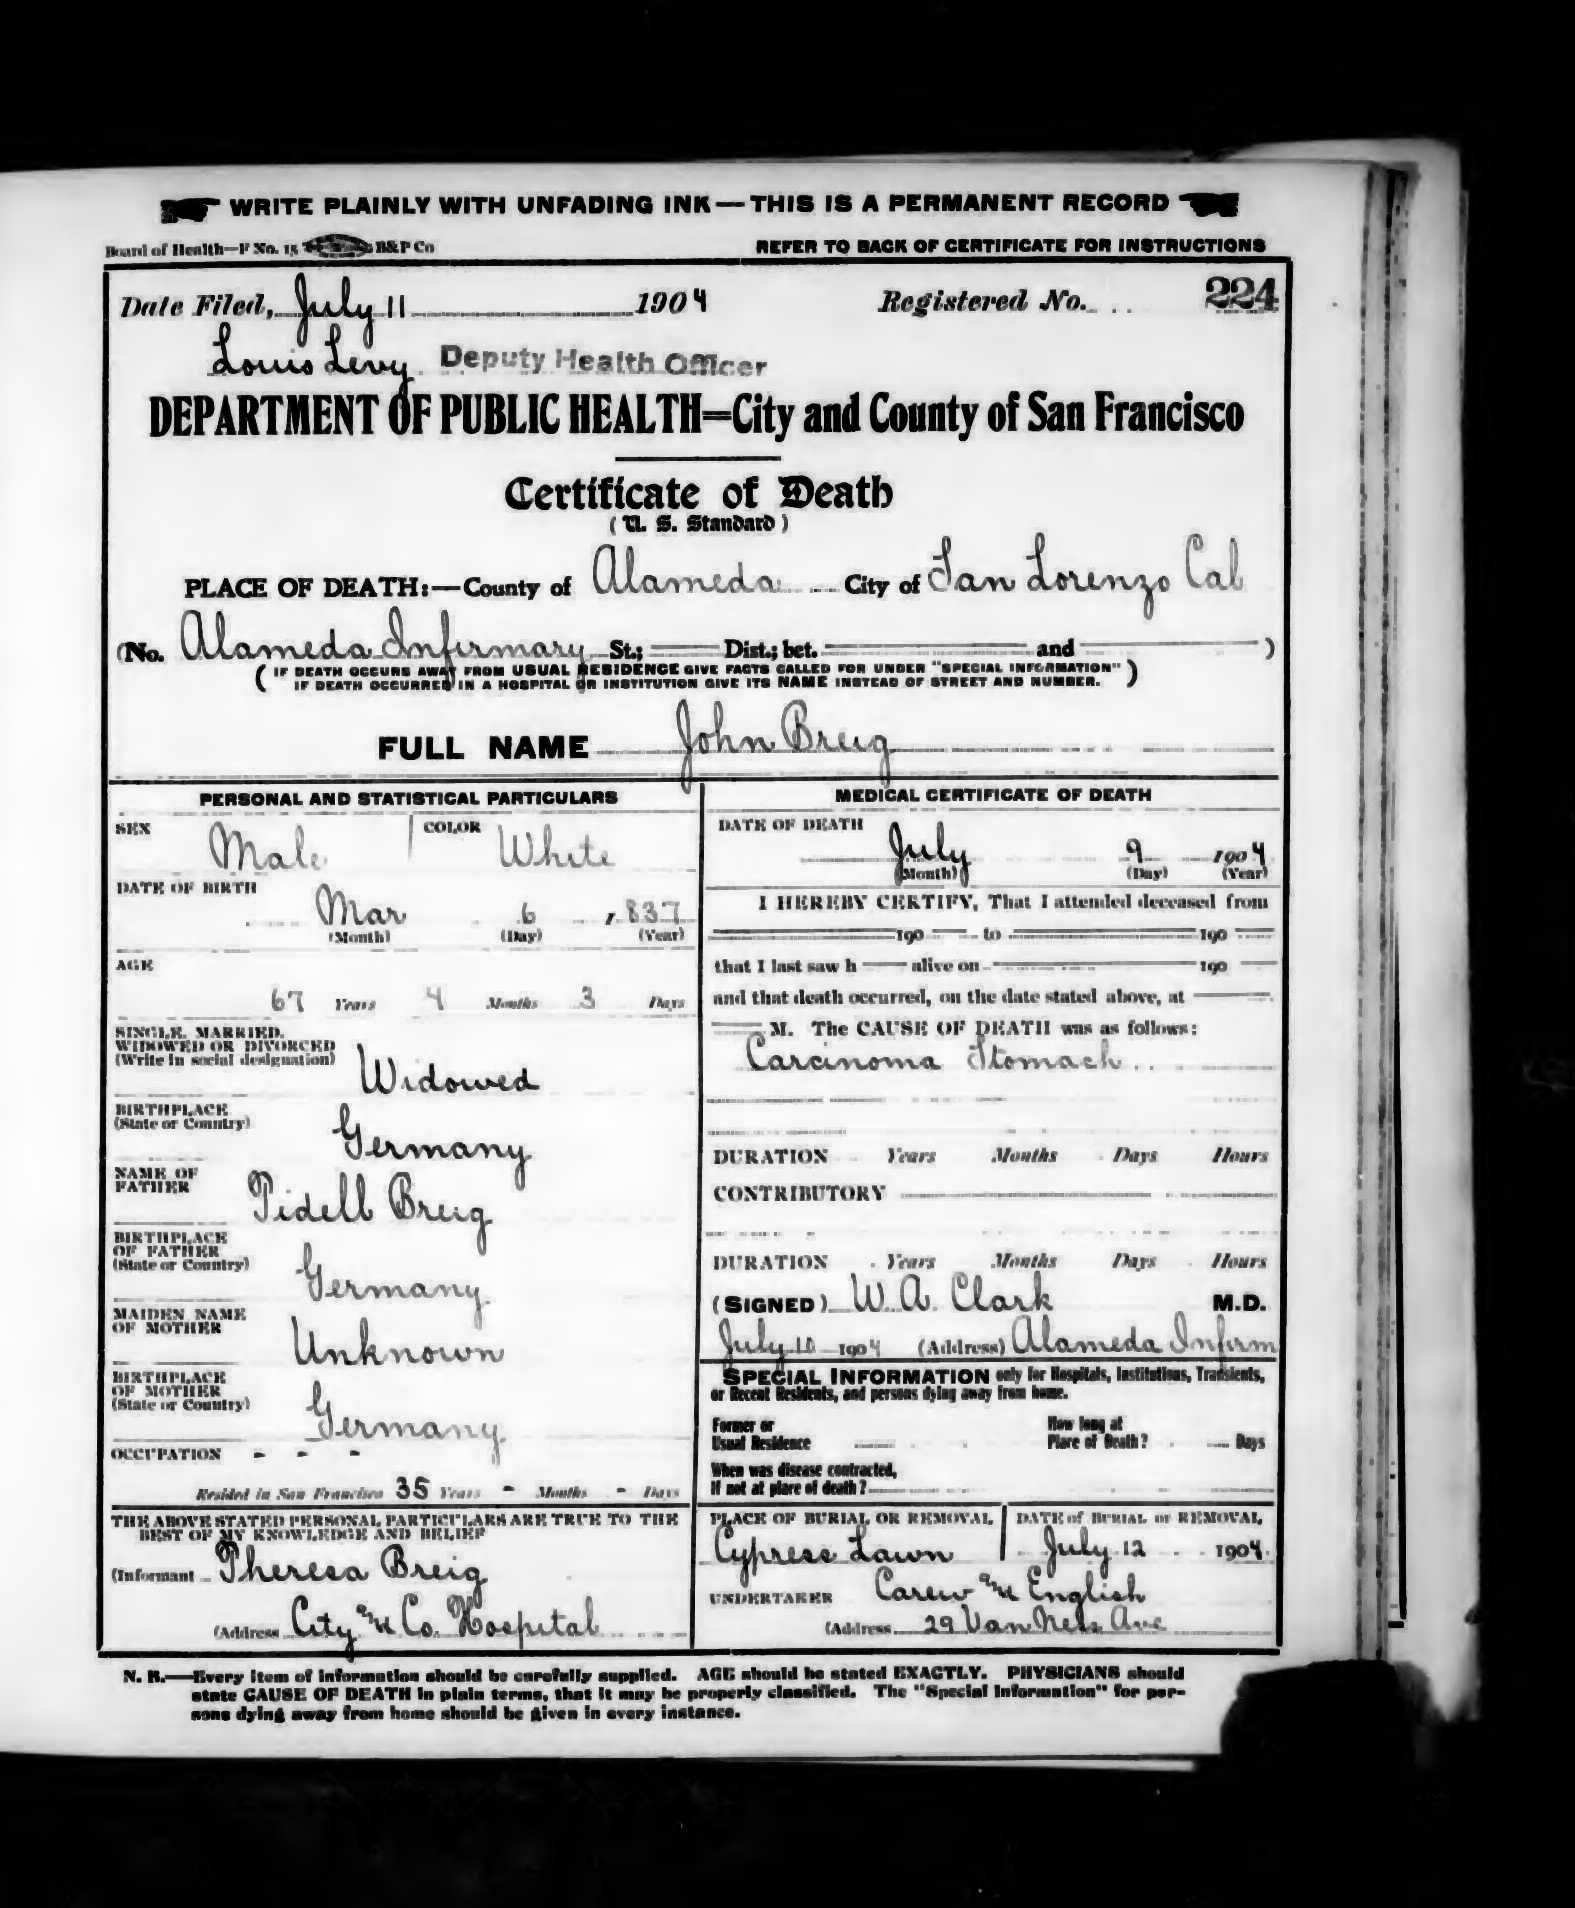 WRITE PLAINLY WITH UNFADING INK—THIS IS A PERMANENT RECORD
Board of Health—F No. 15 B&P Co REFER TO BACK OF CERTIFICATE FOR INSTRUCTIONS
Date Filed, July 11 1904 Registered No. 224
Louis Levy Deputy Health Officer
DEPARTMENT OF PUBLIC HEALTH=City and County of San Francisco
Certificate of Death
(U. S. Standard)
PLACE OF DEATH:—County of Alameda City of San Lorenzo Cal
(No. Alameda Infirmary St.; Dist.; bet. and )
(IF DEATH OCCURS AWAY FROM USUAL RESIDENCE GIVE FACTS CALLED FOR UNDER "SPECIAL INFORMATION"
IF DEATH OCCURRED IN A HOSPITAL OR INSTITUTION GIVE ITS NAME INSTEAD OF STREET AND NUMBER.)
FULL NAME John Breig
PERSONAL AND STATISTICAL PARTICULARS
SEX Male COLOR White
DATE OF BIRTH
Mar 6, 837
(Month) (Day) (Year)
AGE
67 Years 4 Months 3 Days
SINGLE, MARRIED,
WIDOWED OR DIVORCED
(Write in social designation) Widowed
BIRTHPLACE
(State or Country) Germany
NAME OF
FATHER Pidell Breig
BIRTHPLACE
OF FATHER
(State or Country) Germany
MAIDEN NAME
OF MOTHER Unknown
BIRTHPLACE
OF MOTHER
(State or Country) Germany
OCCUPATION - - -
Resided in San Francisco 35 Years - Months - Days
THE ABOVE STATED PERSONAL PARTICULARS ARE TRUE TO THE
BEST OF MY KNOWLEDGE AND BELIEF
(Informant Theresa Breig
(Address City and Co. Hospital
MEDICAL CERTIFICATE OF DEATH
DATE OF DEATH
July 9 1904
(Month) (Day) (Year)
I HEREBY CERTIFY, That I attended deceased from
190 to 190
that I last saw h alive on 190
and that death occurred, on the date stated above, at
M. The CAUSE OF DEATH was as follows:
Carcinoma Stomach
DURATION Years Months Days Hours
CONTRIBUTORY
DURATION Years Months Days Hours
(SIGNED) W. A. Clark M.D.
July 10 1904 (Address) Alameda Infirm
SPECIAL INFORMATION only for Hospitals, Institutions, Transients,
or Recent Residents, and persons dying away from home.
Former or
Usual Residence
How long at
Place of Death? Days
When was disease contracted,
If not at place of death?
PLACE OF BURIAL OR REMOVAL
Cypress Lawn
DATE of BURIAL or REMOVAL
July 12 1904
UNDERTAKER Carew and English
(Address 29 Van Ness Ave
N. B.—Every item of information should be carefully supplied. AGE should be stated EXACTLY. PHYSICIANS should
state CAUSE OF DEATH in plain terms, that it may be properly classified. The "Special Information" for per-
sons dying away from home should be given in every instance.